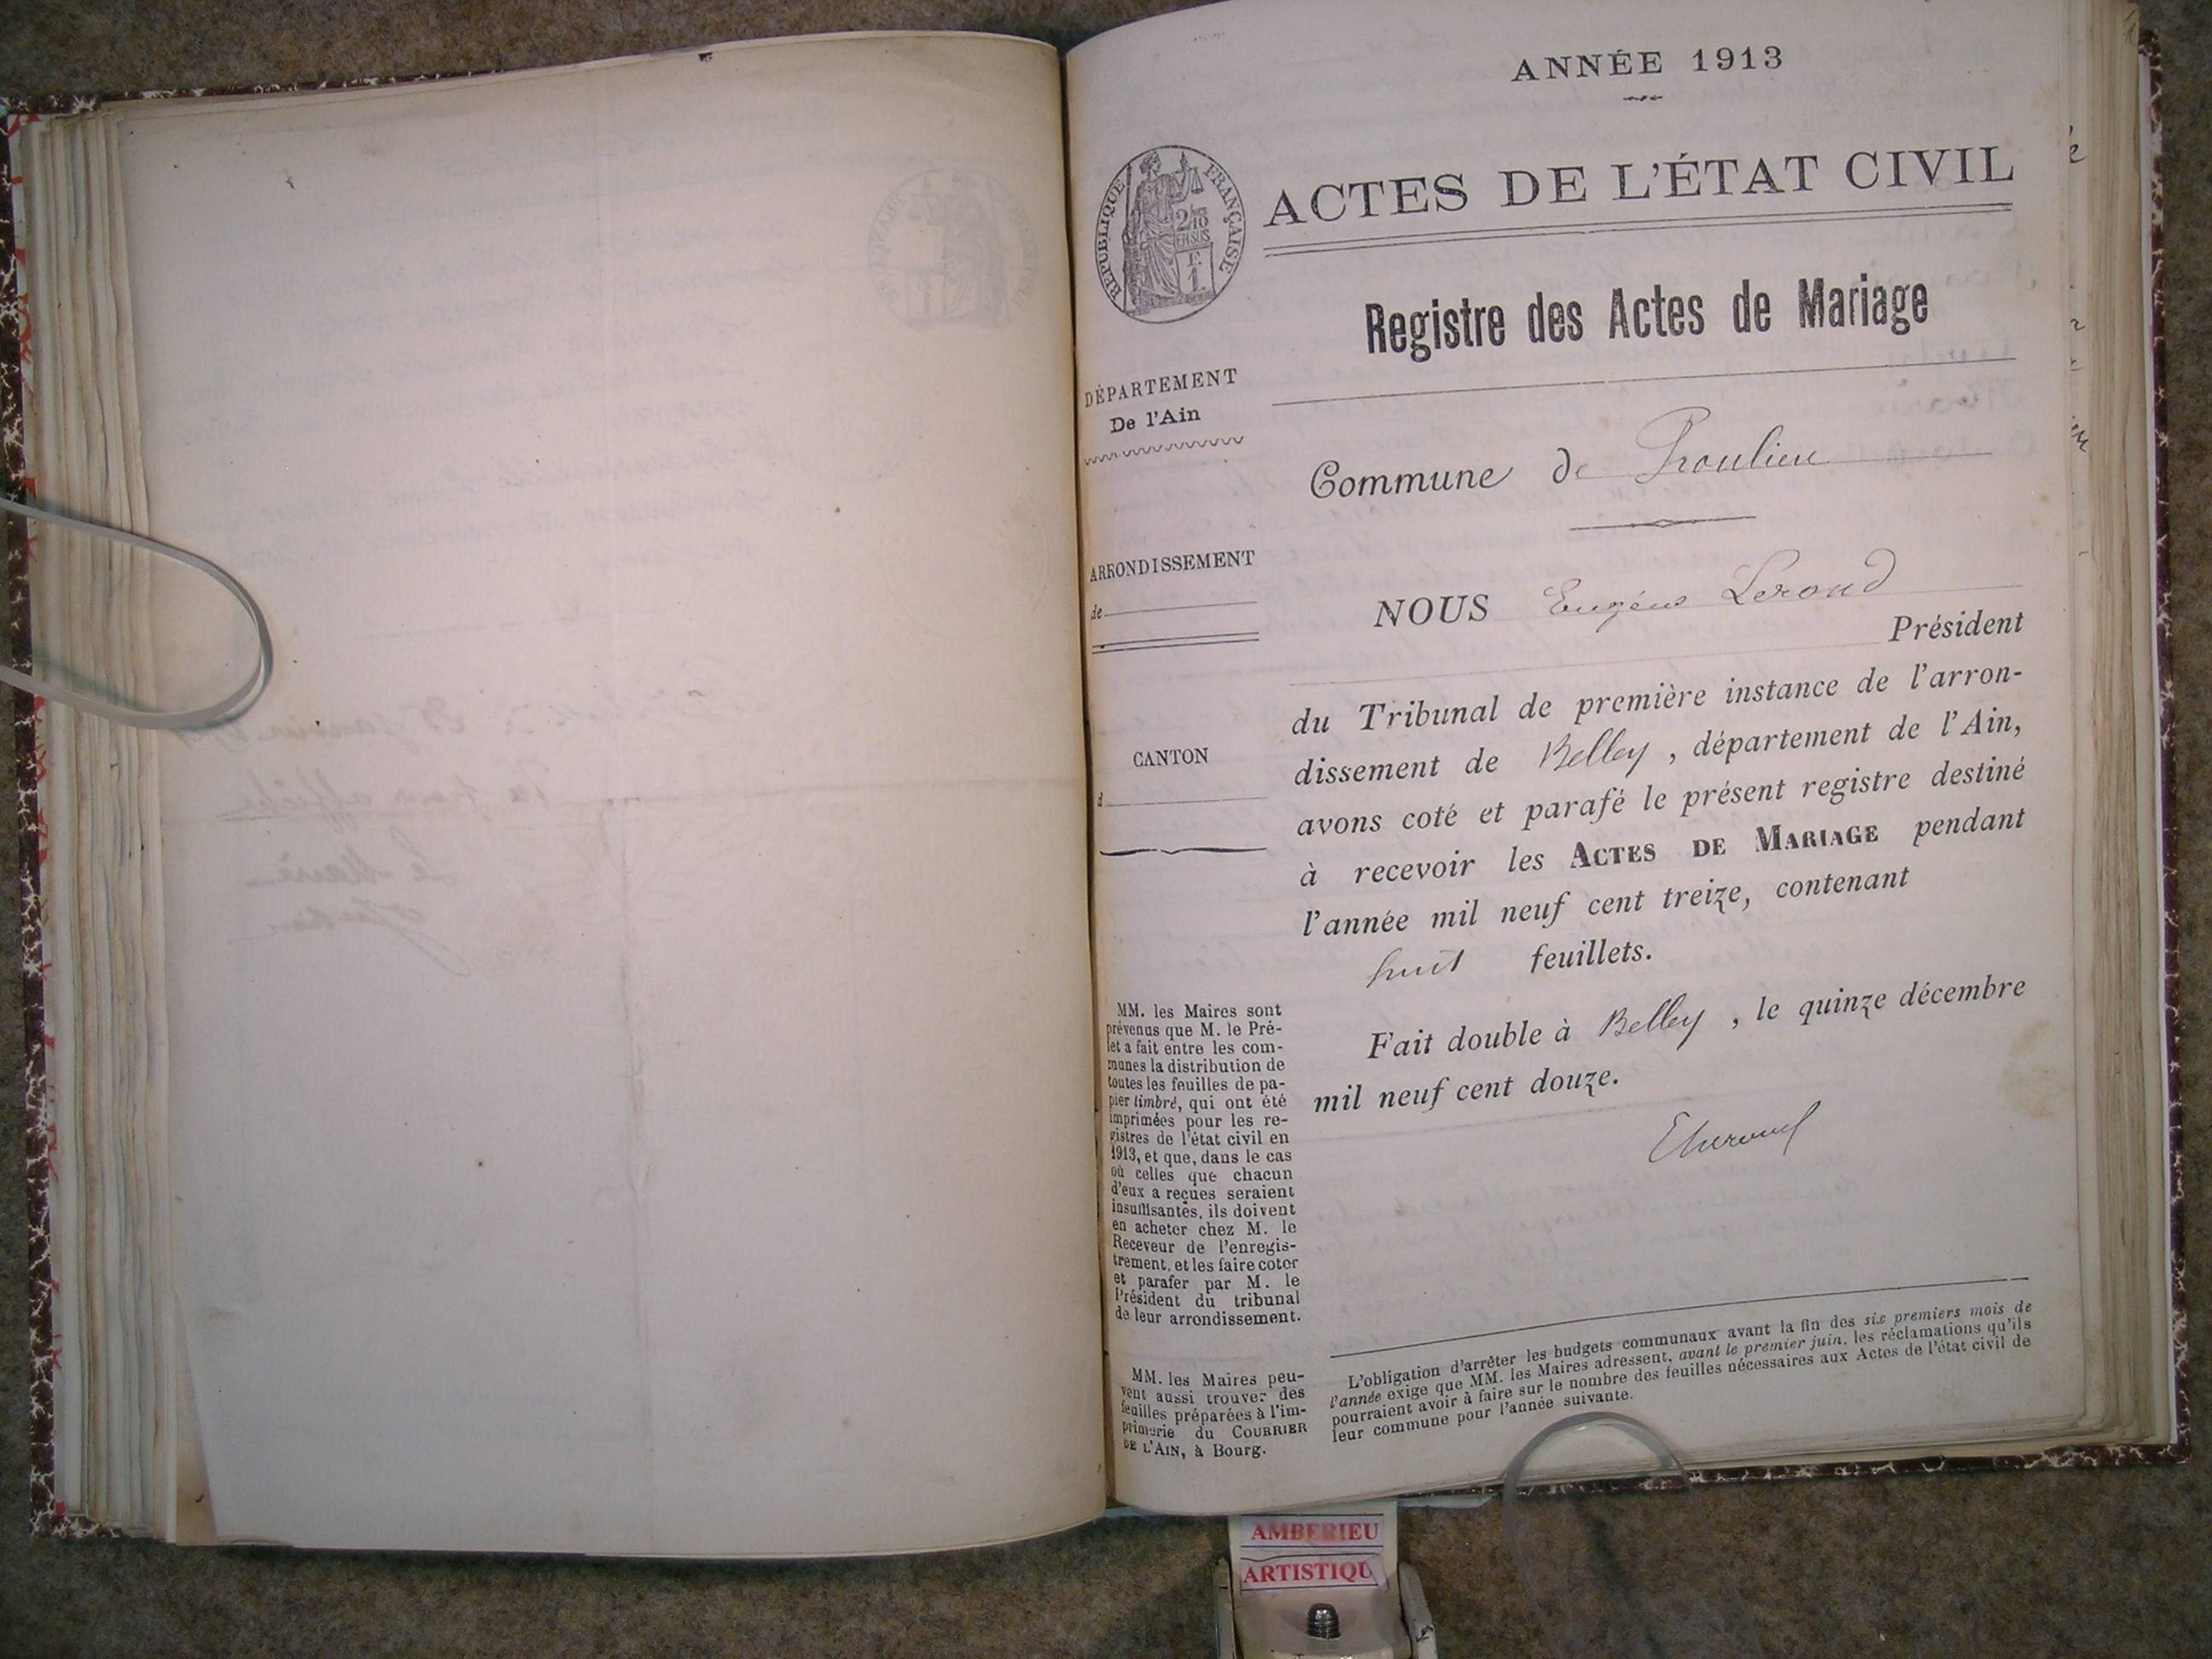 ANNÉE 1913
RÉPUBLIQUE FRANÇAISE
ACTES DE L'ÉTAT CIVIL
Registre des Actes de Mariage
DÉPARTEMENT
De l'Ain
Commune de Proulieu
ARRONDISSEMENT
de
NOUS Eugène Lerond
Président
du Tribunal de première instance de l'arron-
dissement de Belley, département de l'Ain,
CANTON
d
avons coté et parafé le présent registre destiné
à recevoir les ACTES DE MARIAGE pendant
l'année mil neuf cent treize, contenant
huit feuillets.
Fait double à Belley, le quinze décembre
mil neuf cent douze.
MM. les Maires sont
prévenus que M. le Pré-
fet a fait entre les com-
munes la distribution de
toutes les feuilles de pa-
pier timbré, qui ont été
imprimées pour les re-
gistres de l'état civil en
1913, et que, dans le cas
où celles que chacun
d'eux a reçues seraient
insuffisantes, ils doivent
en acheter chez M. le
Receveur de l'enregis-
trement, et les faire coter
et parafer par M. le
Président du tribunal
de leur arrondissement.
MM. les Maires peu-
vent aussi trouver des
feuilles préparées à l'im-
primerie du COURRIER
DE L'AIN, à Bourg.
L'obligation d'arrêter les budgets communaux avant la fin des six premiers mois de
l'année exige que MM. les Maires adressent, avant le premier juin, les réclamations qu'ils
pourraient avoir à faire sur le nombre des feuilles nécessaires aux Actes de l'état civil de
leur commune pour l'année suivante.
AMBERIEU
ARTISTIQU